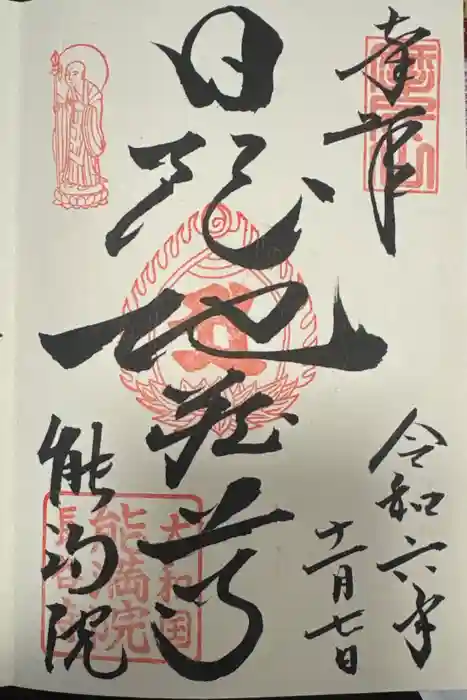 奉拝
令和六年
十一月七日
日限地蔵尊
能満院
大和国
能満院
長谷寺